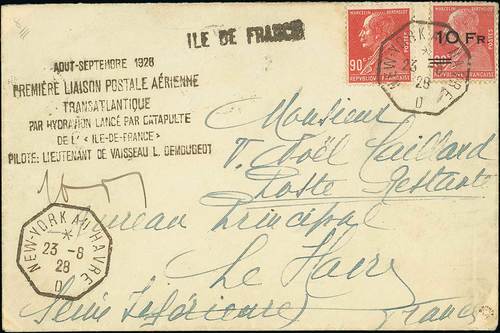 ILE DE FRANCE
AOUT-SEPTEMBRE 1928
PREMIÈRE LIAISON POSTALE AÉRIENNE
TRANSATLANTIQUE
PAR HYDRAVION LANCÉ PAR CATAPULTE
DE L'<ILE-DE-FRANCE>
PILOTE: LIEUTENANT DE VAISSEAU L. DEMOUGEOT
MARCELLIN BERTHELOT
90c
POSTES
REPUBLIQUE FRANÇAISE
MARCELLIN BERTHELOT
10 Fr
POSTES
REPUBLIQUE FRANÇAISE
NEW-YORK AU HAVRE
*
23 -8
28
D
Monsieur
Noël Gaillard
Poste Restante
Bureau Principal
Le Havre
Seine Inférieure
France
NEW-YORK AU HAVRE
*
23 -8
28
D